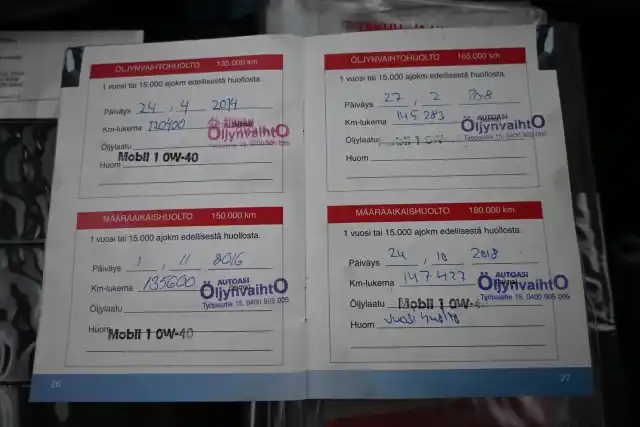 ÖLJYNVAIHTOHUOLTO 135.000 km
1 vuosi tai 15.000 ajokm edellisestä huollosta.
Päiväys 24 . 4 2014
Km-lukema 120400
ÖljynvaihtO
Öljylaatu
Mobil 1 0W-40
Huom
MÄÄRÄAIKAISHUOLTO 150.000 km
1 vuosi tai 15.000 ajokm edellisestä huollosta.
Päiväys 1 . 11 2016
Km-lukema 135600
AUTOASI
ÖljynvaihtO
Työpajatie 15, 0400 905 005
Öljylaatu
Huom Mobil 1 0W-40
26
ÖLJYNVAIHTOHUOLTO 165.000 km
1 vuosi tai 15.000 ajokm edellisestä huollosta.
Päiväys 27 . 2 2018
Km-lukema 145283
AUTOASI
ÖljynvaihtO
Työpajatie 15, 0400 905 005
Öljylaatu Mobil 1 0W
Huom
MÄÄRÄAIKAISHUOLTO 180.000 km
1 vuosi tai 15.000 ajokm edellisestä huollosta.
Päiväys 24 . 10 2018
Km-lukema 147427
AUTOASI
ÖljynvaihtO
Työpajatie 15, 0400 905 005
Öljylaatu Mobil 1 0W-
Huom Vuosi huolto
27